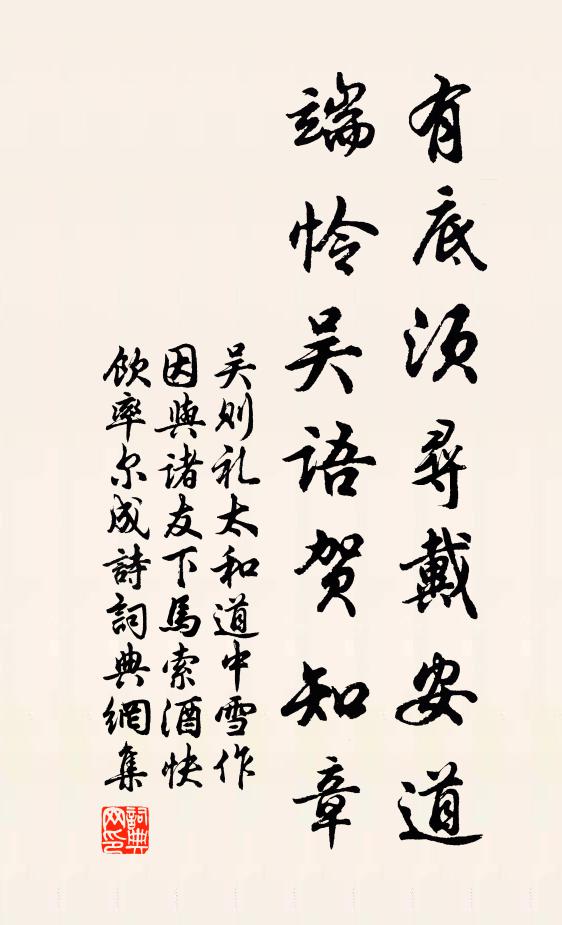 有底须尋戴安道
端怜吴语贺知章
吴则礼太和道中雪作
因與诸友下馬索酒快
飲率尔成詩詞典網集
詞典
网印